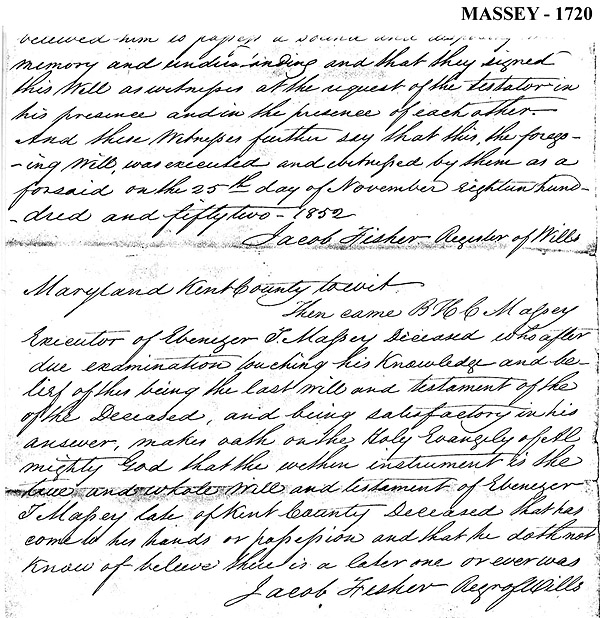 MASSEY - 1720
beleeved him is possess a sound and disposing
memory and understanding and that they signed
this Will as witnesses at the request of the testator in
his presence and in the presence of each other.
And these Witnesses further say that this, the forego-
-ing Will, was executed and witnessed by them as a
forsaid on the 25th day of November Eighteen hun-
-dred and fifty two - 1852
Jacob Fisher Register of Wills
Maryland Kent County to wit.
Then came B H C Massey
Executor of Ebenezer T Massey Deceased who after
due examination touching his Knowledge and be-
lief of this being the last will and testament of the
of the Deceased, and being satisfactory in his
answer, makes oath on the Holy Evangely of Al
mighty God that the within instrument is the
true and whole Will and testament of Ebenezer
T Massey late of Kent County Deceased that has
come to his hands or possession and that he doth not
Know of beleeve there is a later one or ever was
Jacob Fisher Regr of Wills